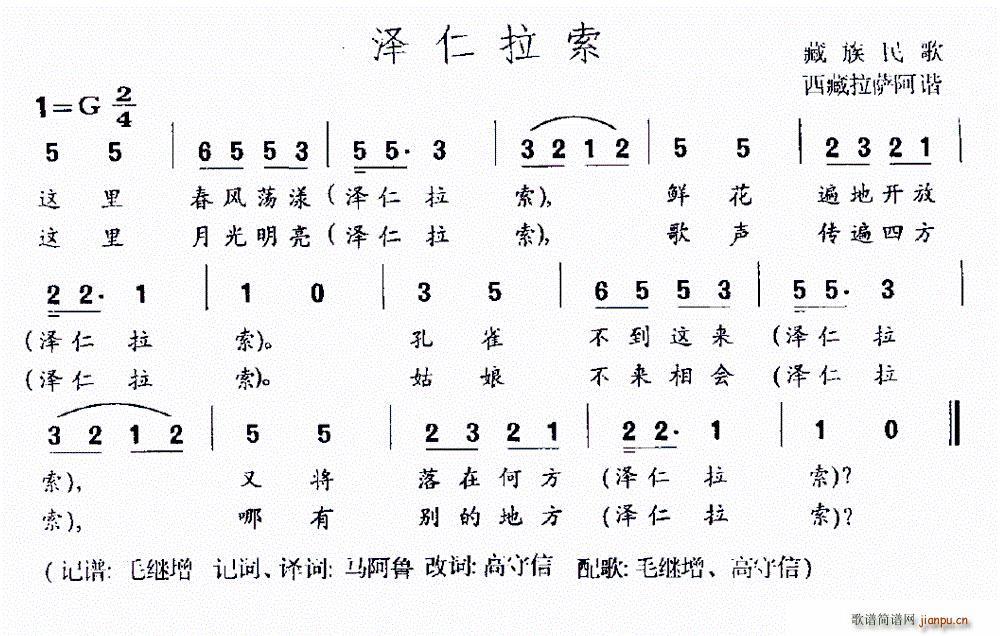 泽仁拉索
藏族民歌
西藏拉萨阿谐
1=G 2/4
5 5 | 6 5 5 3 | 5 5· 3 | 3 2 1 2 | 5 5 | 2 3 2 1 |
这里 春风荡漾(泽仁拉 索), 鲜花 遍地开放
这里 月光明亮(泽仁拉 索), 歌声 传遍四方
2 2· 1 | 1 0 | 3 5 | 6 5 5 3 | 5 5· 3 |
(泽仁拉 索)。 孔雀 不到这来 (泽仁拉
(泽仁拉 索)。 姑娘 不来相会 (泽仁拉
3 2 1 2 | 5 5 | 2 3 2 1 | 2 2· 1 | 1 0 ‖
索), 又将 落在何方 (泽仁拉 索)?
索), 哪有 别的地方 (泽仁拉 索)?
(记谱: 毛继增 记词、译词: 马阿鲁 改词: 高守信 配歌: 毛继增、高守信)
歌谱简谱网 jianpu.cn